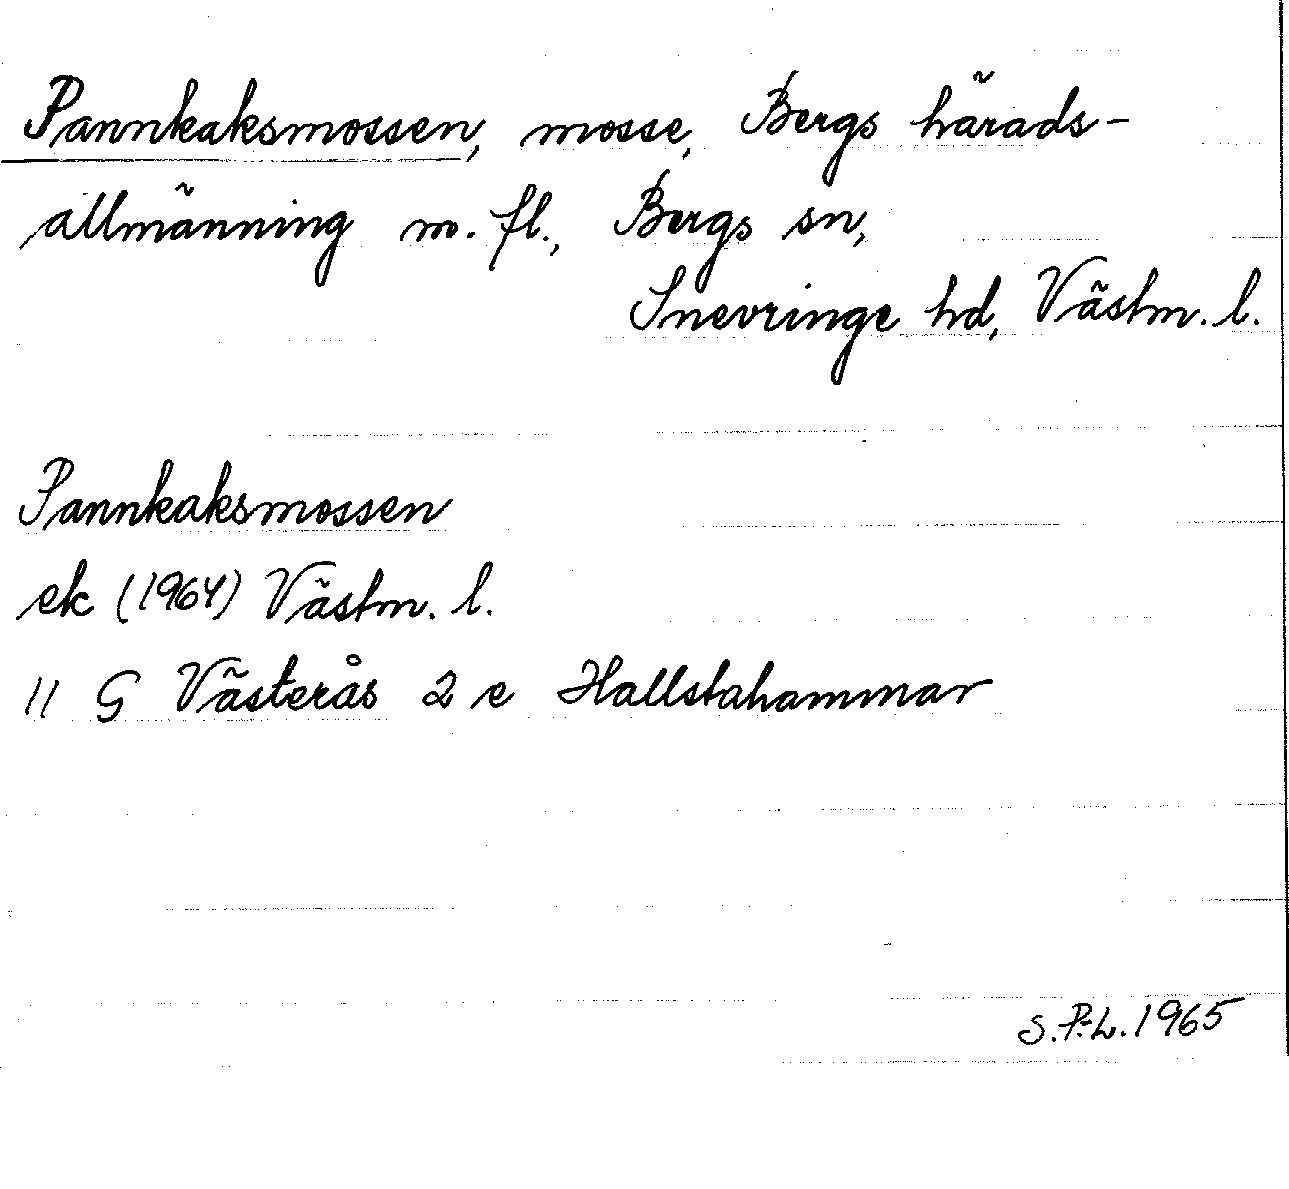 Pannkaksmossen, mosse, Bergs härads-
allmänning m. fl., Bergs sn,
Snevringe hd, Västm. l.
Pannkaksmossen
ek (1964) Västm. l.
11 G Västerås 2 e Hallstahammar
S.P-L. 1965